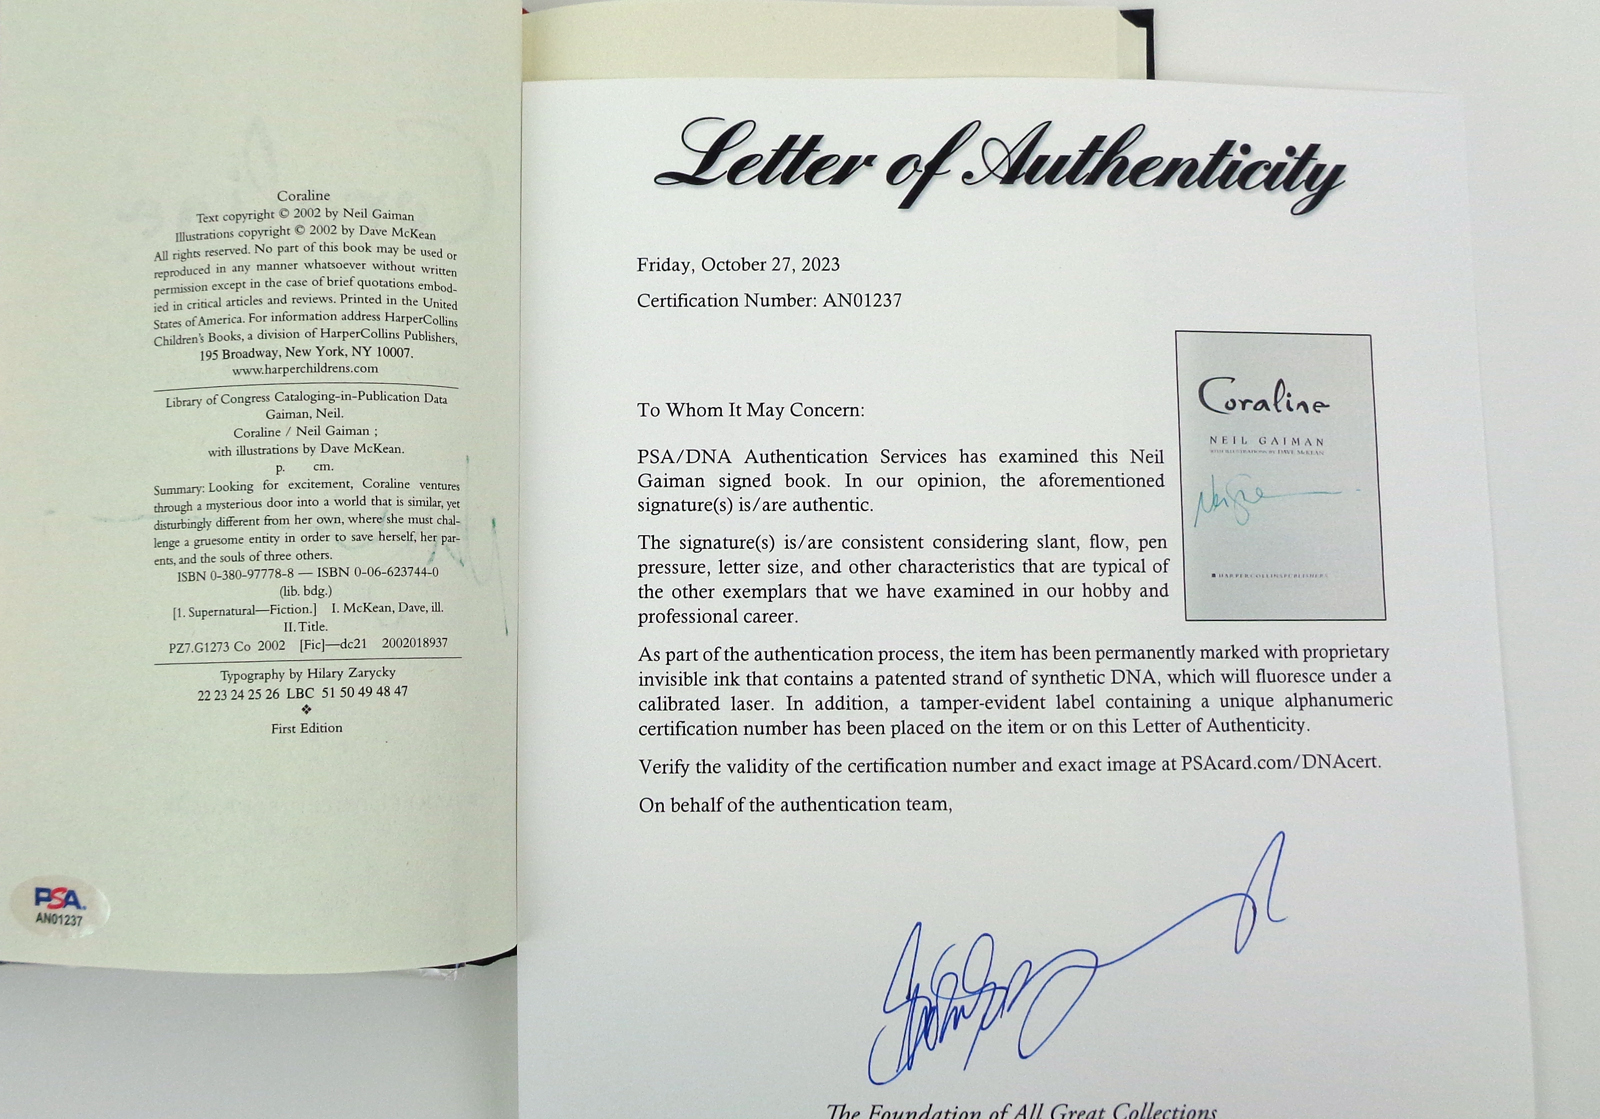 Coraline
Text copyright © 2002 by Neil Gaiman
Illustrations copyright © 2002 by Dave McKean
All rights reserved. No part of this book may be used or
reproduced in any manner whatsoever without written
permission except in the case of brief quotations embod-
ied in critical articles and reviews. Printed in the United
States of America. For information address HarperCollins
Children's Books, a division of HarperCollins Publishers,
195 Broadway, New York, NY 10007.
www.harperchildrens.com
Library of Congress Cataloging-in-Publication Data
Gaiman, Neil.
Coraline / Neil Gaiman ;
with illustrations by Dave McKean.
p. cm.
Summary: Looking for excitement, Coraline ventures
through a mysterious door into a world that is similar, yet
disturbingly different from her own, where she must chal-
lenge a gruesome entity in order to save herself, her par-
ents, and the souls of three others.
ISBN 0-380-97778-8 — ISBN 0-06-623744-0
(lib. bdg.)
[1. Supernatural—Fiction.] I. McKean, Dave, ill.
II. Title.
PZ7.G1273 Co 2002 [Fic]—dc21 2002018937
Typography by Hilary Zarycky
22 23 24 25 26 LBC 51 50 49 48 47
❖
First Edition
PSA.
AN01237
Letter of Authenticity
Friday, October 27, 2023
Certification Number: AN01237
To Whom It May Concern:
PSA/DNA Authentication Services has examined this Neil
Gaiman signed book. In our opinion, the aforementioned
signature(s) is/are authentic.
The signature(s) is/are consistent considering slant, flow, pen
pressure, letter size, and other characteristics that are typical of
the other exemplars that we have examined in our hobby and
professional career.
As part of the authentication process, the item has been permanently marked with proprietary
invisible ink that contains a patented strand of synthetic DNA, which will fluoresce under a
calibrated laser. In addition, a tamper-evident label containing a unique alphanumeric
certification number has been placed on the item or on this Letter of Authenticity.
Verify the validity of the certification number and exact image at PSAcard.com/DNAcert.
On behalf of the authentication team,
Coraline
NEIL GAIMAN
WITH ILLUSTRATIONS BY DAVE McKEAN
HARPERCOLLINSPUBLISHERS
The Foundation of All Great Collections